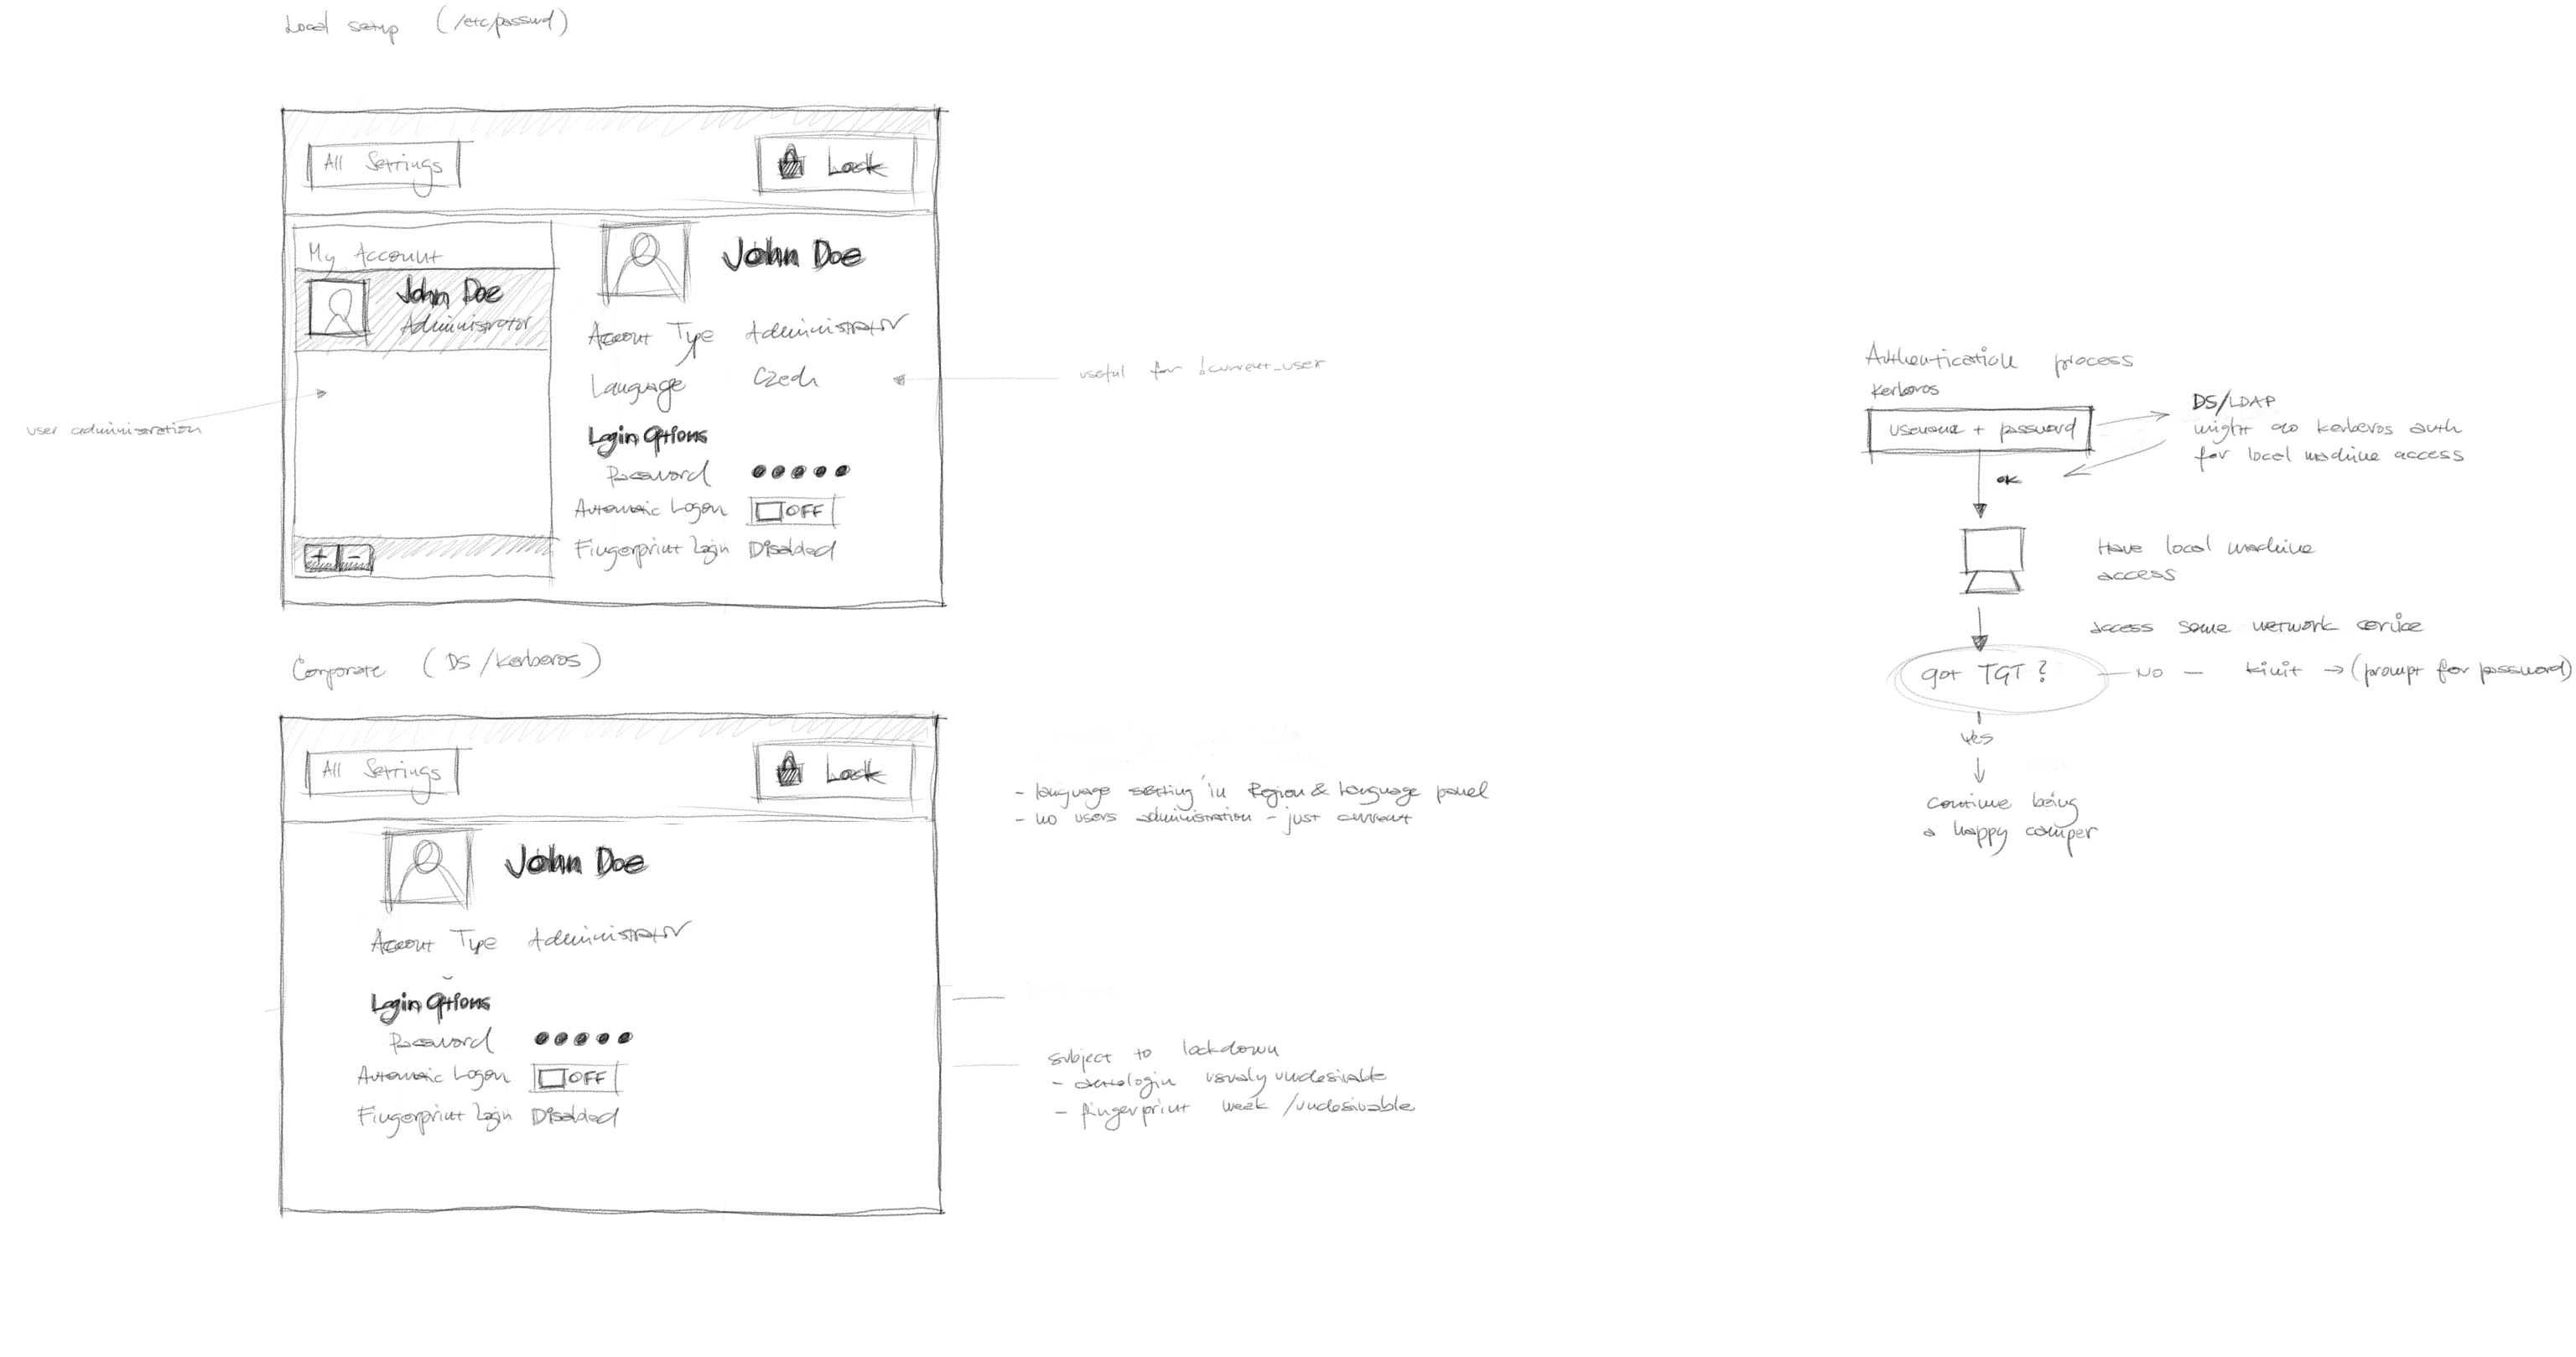 Local setup (/etc/passwd)
All Settings
Lock
My Account
John Doe
Administrator
John Doe
Account Type Administrator
Language Czech
Login Options
Password ●●●●●
Automatic Logon OFF
Fingerprint Login Disabled
+ −
user administration
useful for !current_user
Corporate (DS/Kerberos)
All Settings
Lock
John Doe
Account Type Administrator
Login Options
Password ●●●●●
Automatic Logon OFF
Fingerprint Login Disabled
- language setting in Region & Language panel
- no users administration - just current
subject to lockdown
- autologin usualy undesirable
- fingerprint weak/undesirable
Authentication process
Kerberos
username + password
DS/LDAP
might do kerberos auth
for local machine access
OK
Have local machine
access
access some network service
got TGT?
NO — kinit → (prompt for password)
Yes
continue being
a happy camper